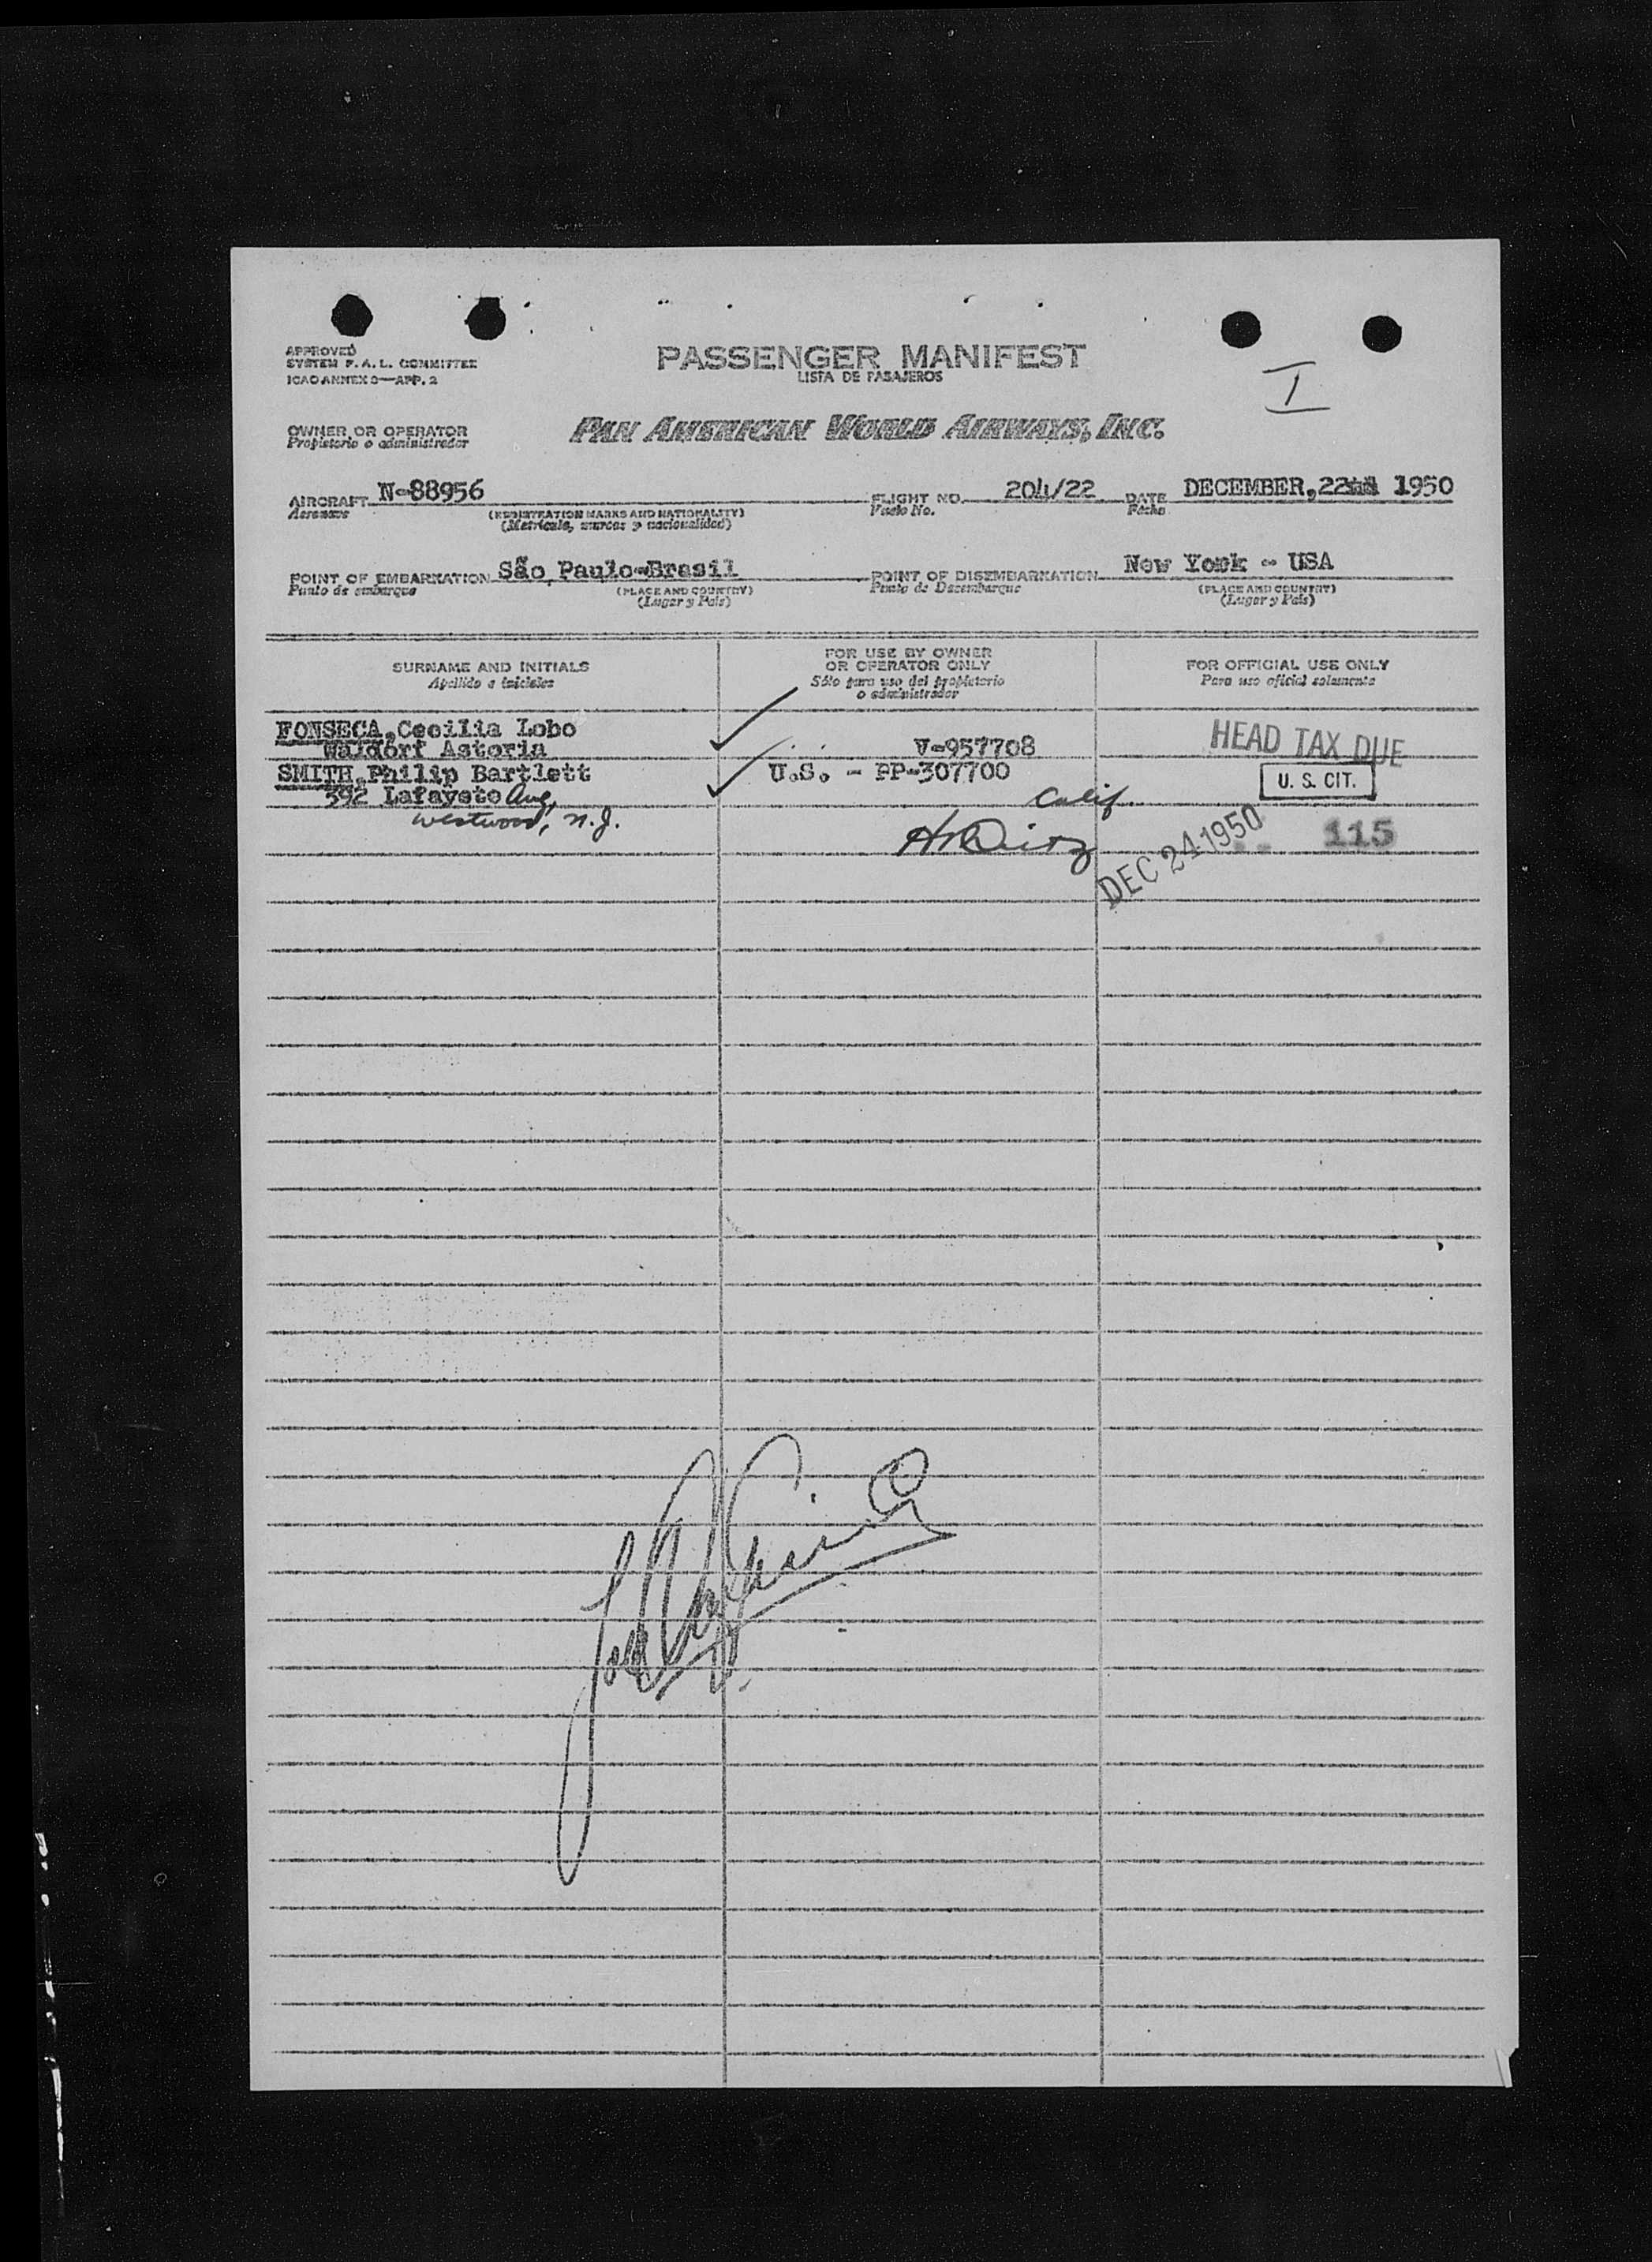 APPROVED
SYSTEM F.A.L. COMMITTEE
ICAO ANNEX 9—APP. 2
PASSENGER MANIFEST
LISTA DE PASAJEROS
I
OWNER OR OPERATOR
Propietario o administrador
PAN AMERICAN WORLD AIRWAYS, INC.
AIRCRAFT N-88956
Aeronave
(REGISTRATION MARKS AND NATIONALITY)
(Matrícula, marcas y nacionalidad)
FLIGHT NO. 204/22
Vuelo No.
DATE DECEMBER, 22 1950
Fecha
POINT OF EMBARKATION São Paulo-Brasil
Punto de embarque
(PLACE AND COUNTRY)
(Lugar y País)
POINT OF DISEMBARKATION New York - USA
Punto de Desembarque
(PLACE AND COUNTRY)
(Lugar y País)
SURNAME AND INITIALS
Apellido e iniciales
FOR USE BY OWNER
OR OPERATOR ONLY
Sólo para uso del propietario
o administrador
FOR OFFICIAL USE ONLY
Para uso oficial solamente
FONSECA,Cecilia Lobo
Waldorf Astoria
V-957708
HEAD TAX DUE
SMITH,Philip Bartlett
U.S. - PP-307700
U. S. CIT.
392 Lafayete Ave,
Calif.
Westwood, N.J.
DEC 24 1950
115